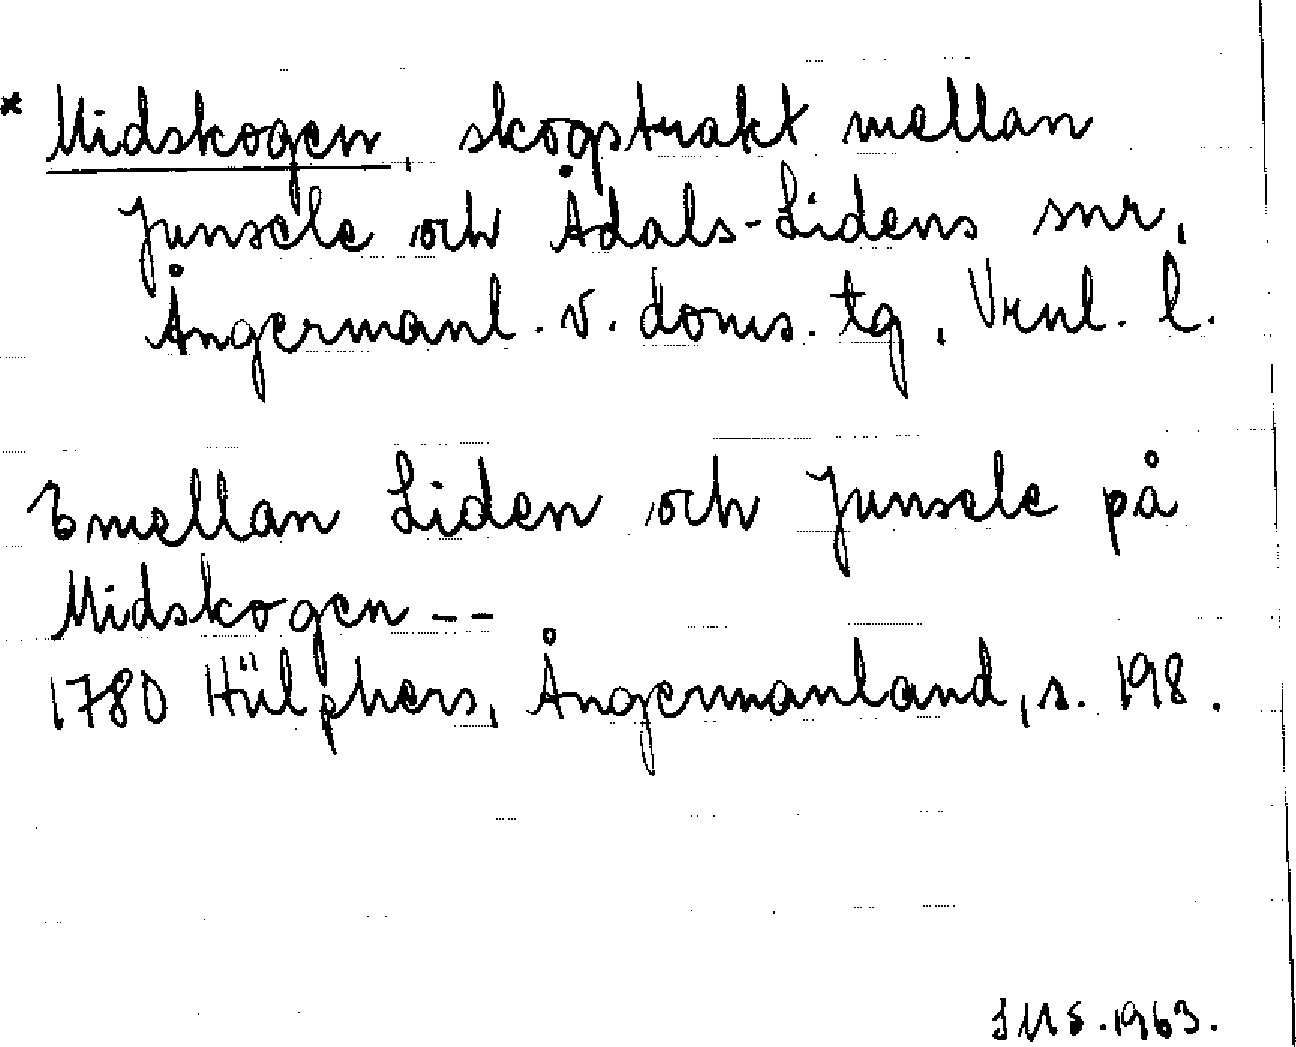 * Midskogen, skogstrakt mellan
Junsele och Ådals-Lidens snr,
Ångermanl. v. doms. tg, Vrnl. l.
Emellan Liden och Junsele på
Midskogen --
1780 Hülphers, Ångermanland, s. 198.
1963.